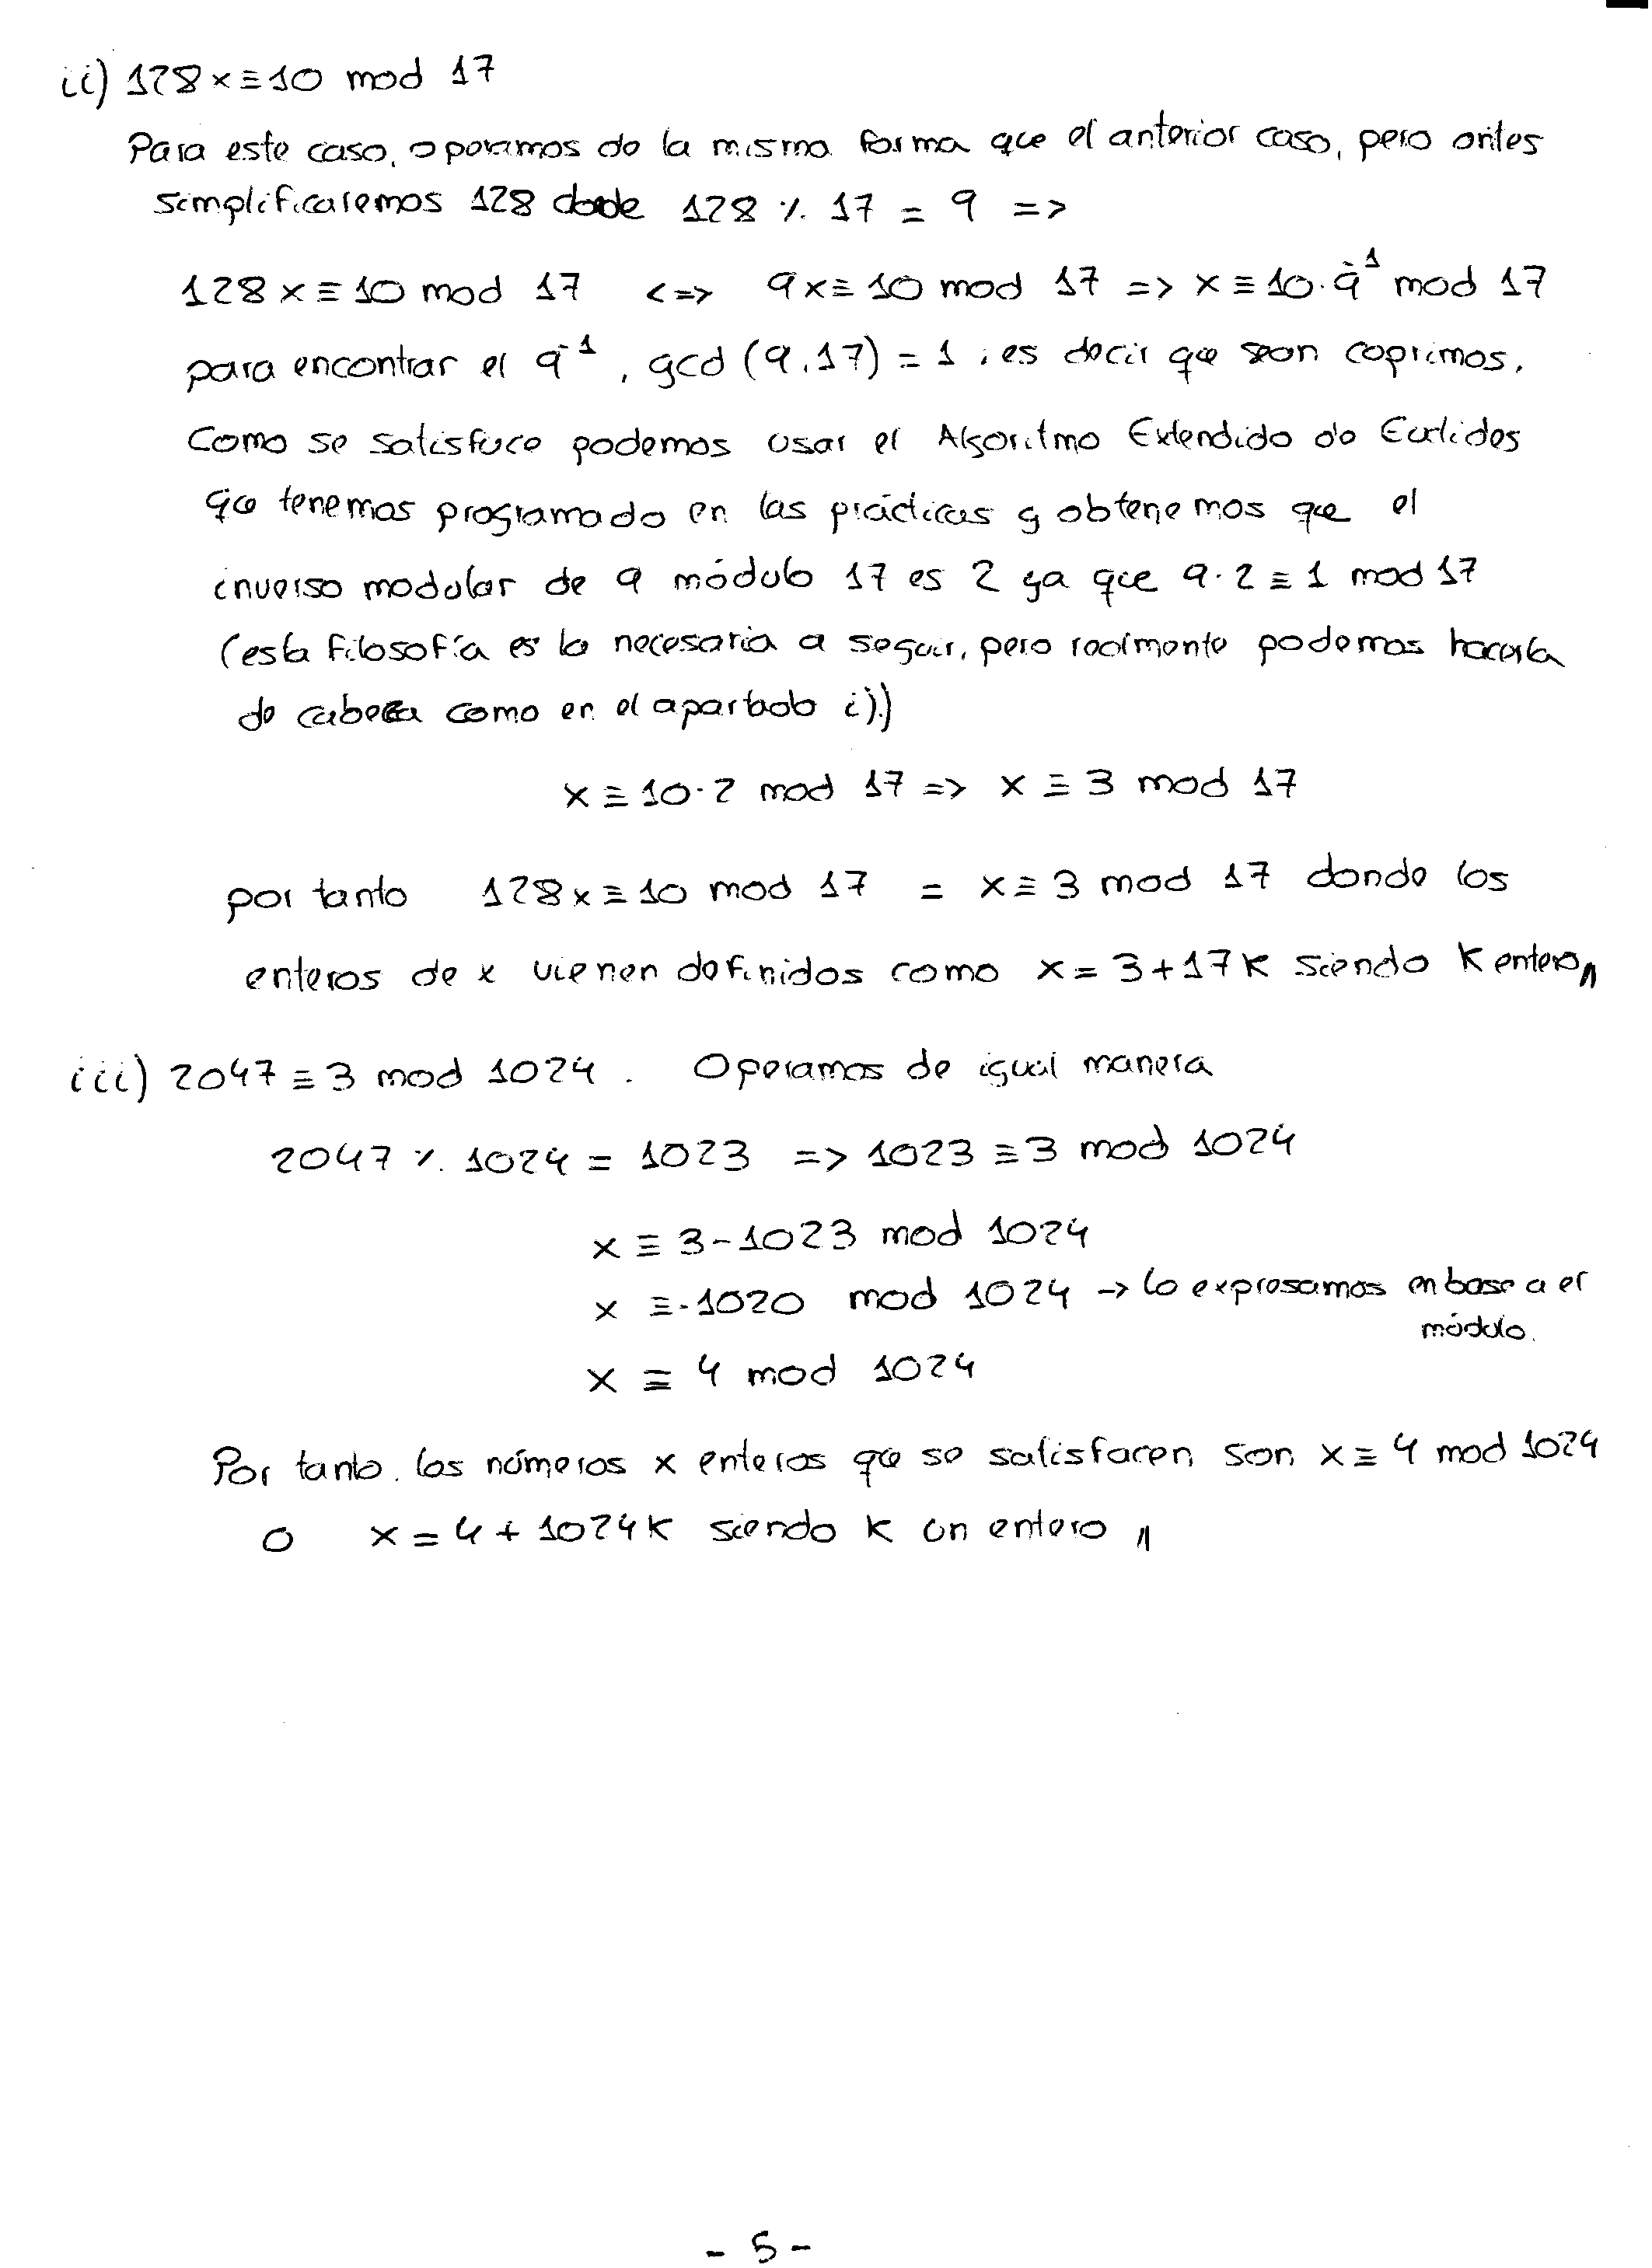 ii) 128x≡10 mod 17
Para este caso, operamos de la misma forma que el anterior caso, pero antes
simplificaremos 128 donde 128 % 17 = 9 =>
128x≡10 mod 17 <=> 9x≡10 mod 17 => x≡10·9⁻¹ mod 17
para encontrar el 9⁻¹, gcd(9,17)=1, es decir que son coprimos.
Como se satisface podemos usar el Algoritmo Extendido de Euclides
que tenemos programado en las prácticas y obtenemos que el
inverso modular de 9 módulo 17 es 2 ya que 9·2≡1 mod 17
(esta filosofía es la necesaria a seguir, pero realmente podemos hacerla
de cabeza como en el apartado i).)
x≡10·2 mod 17 => x≡3 mod 17
por tanto 128x≡10 mod 17 = x≡3 mod 17 donde los
enteros de x vienen definidos como x=3+17K siendo K entero
iii) 2047≡3 mod 1024. Operamos de igual manera
2047 % 1024 = 1023 => 1023≡3 mod 1024
x≡3-1023 mod 1024
x≡-1020 mod 1024 → lo expresamos en base a el
módulo.
x≡4 mod 1024
Por tanto, los números x enteros que se satisfacen son x≡4 mod 1024
o x=4+1024K siendo K un entero
- 5 -